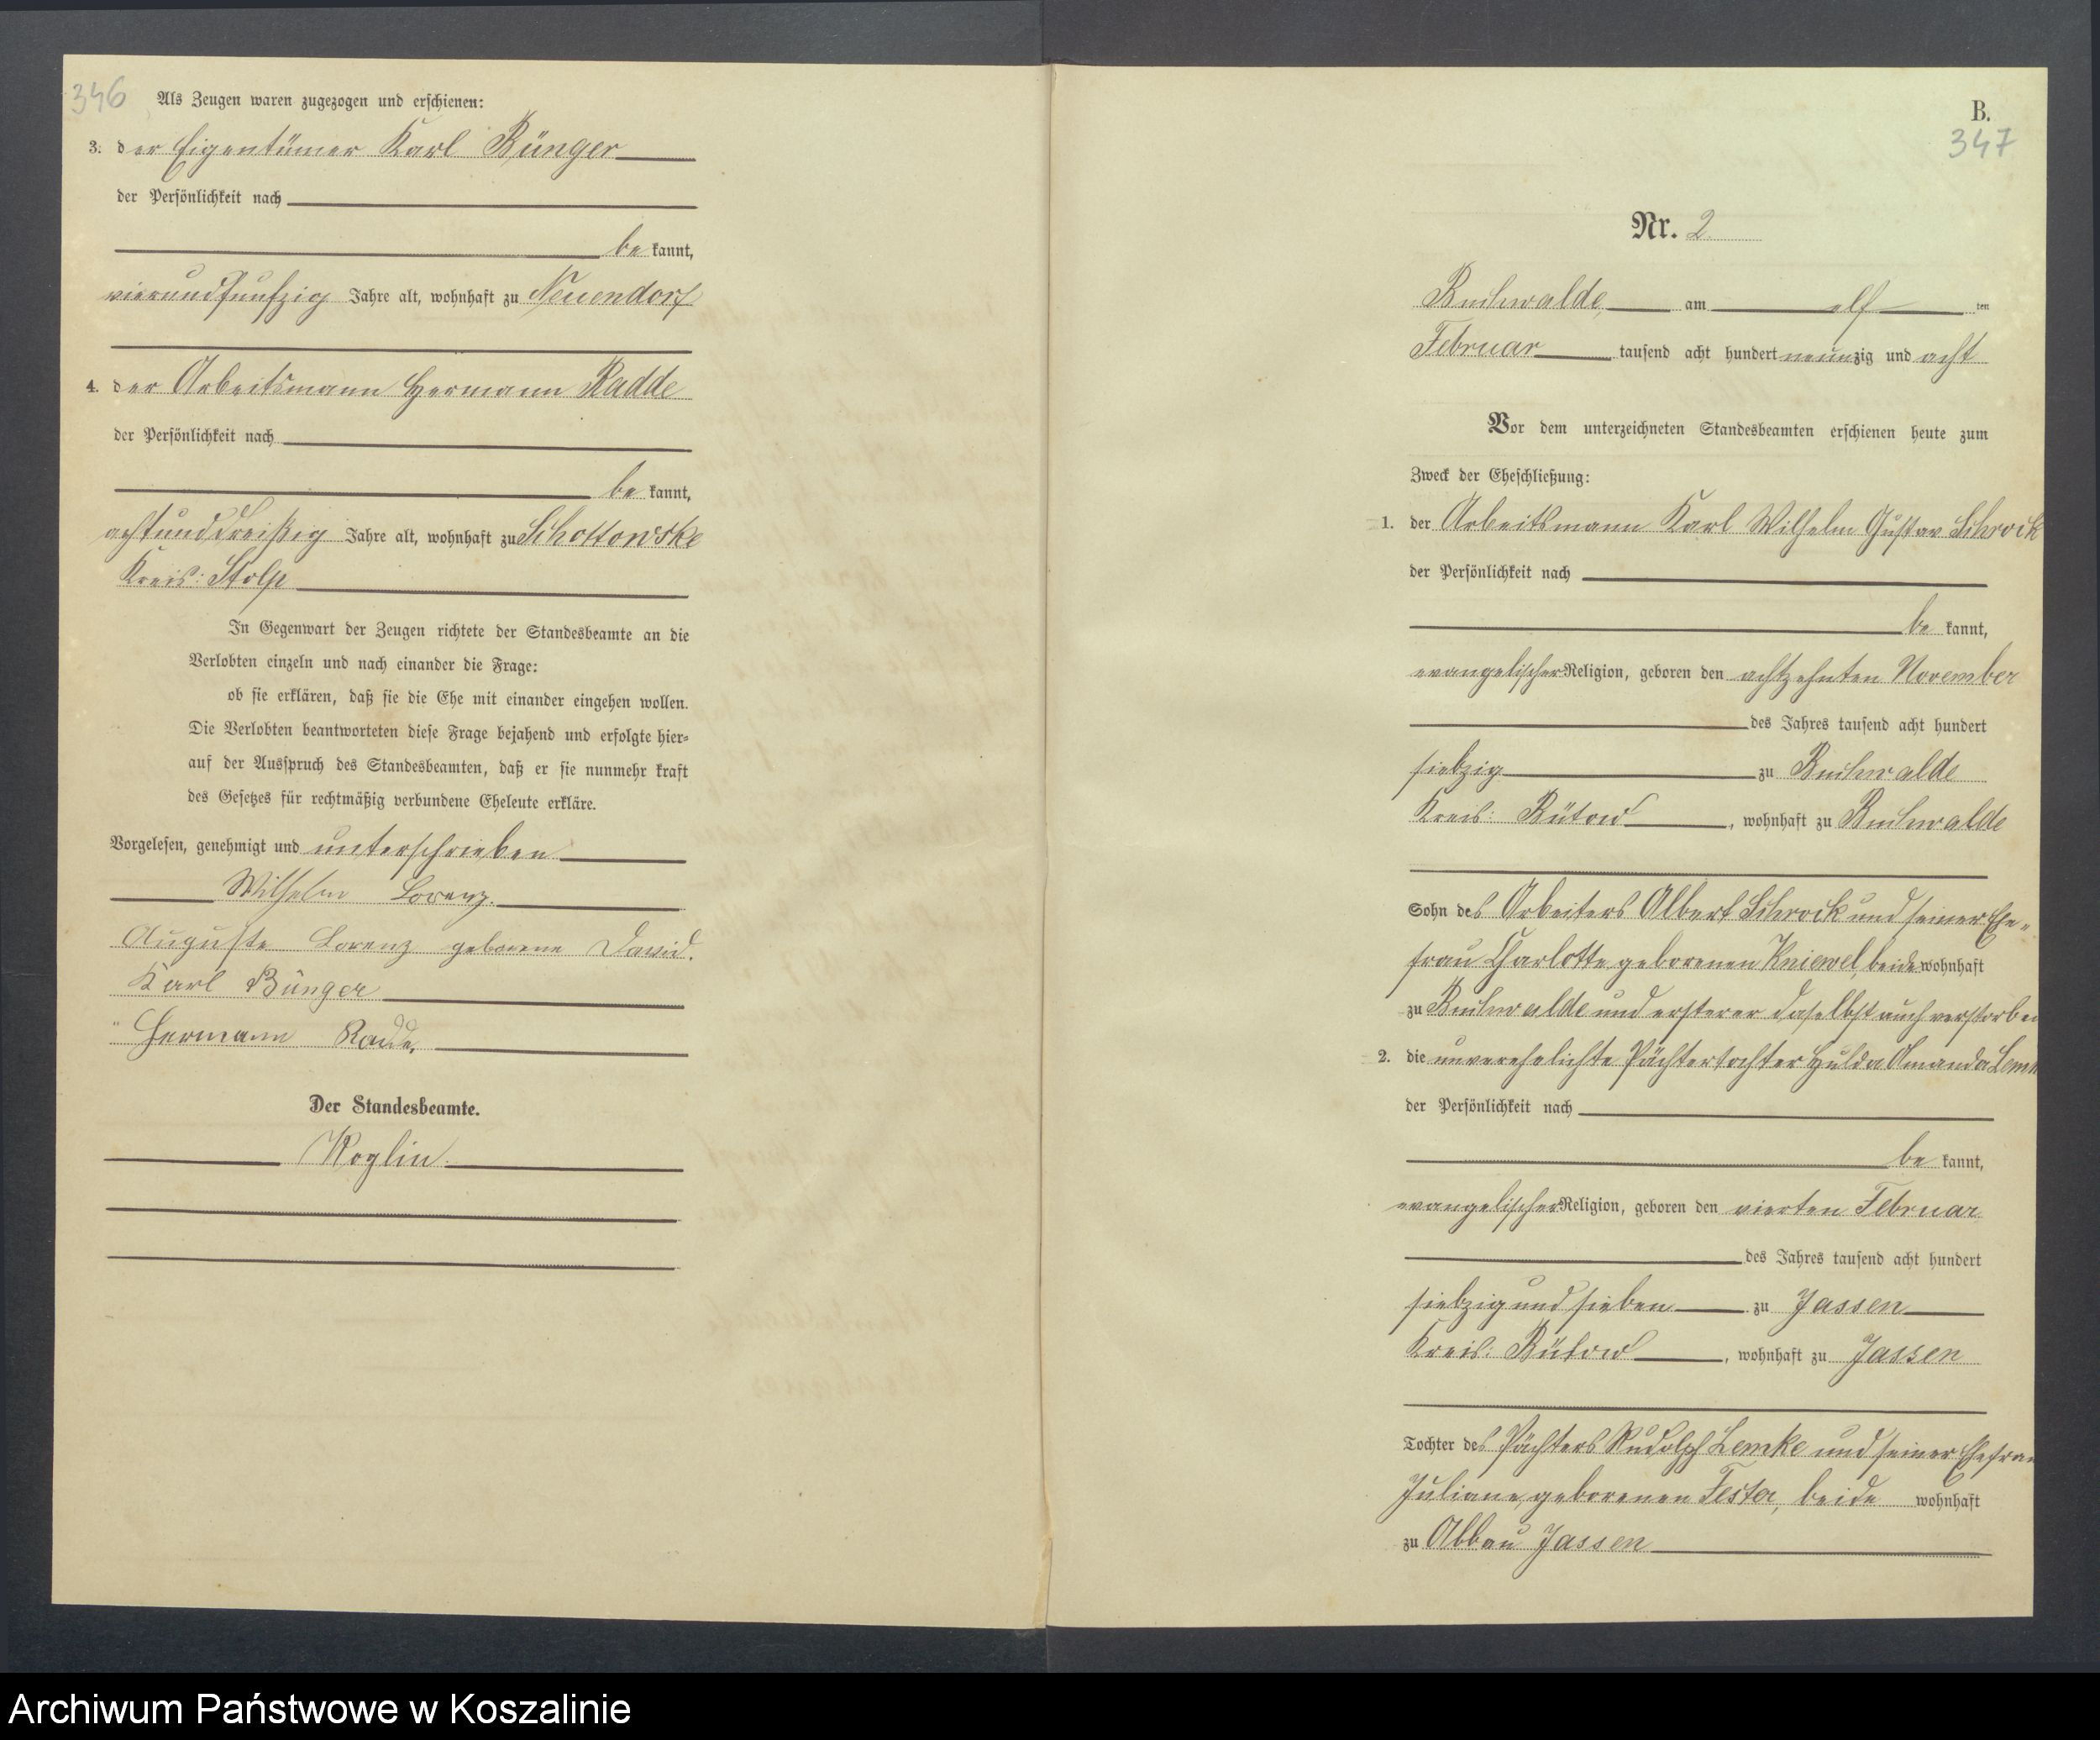 346
Als Zeugen waren zugezogen und erschienen:
3. der Eigentümer Karl Bünger
der Persönlichkeit nach
be kannt,
vierundfunfzig Jahre alt, wohnhaft zu Neuendorf
4. der Arbeitsmann Hermann Radde
der Persönlichkeit nach
be kannt,
achtunddreißig Jahre alt, wohnhaft zu Schottowske
Kreis: Stolp
In Gegenwart der Zeugen richtete der Standesbeamte an die
Verlobten einzeln und nach einander die Frage:
ob sie erklären, daß sie die Ehe mit einander eingehen wollen.
Die Verlobten beantworteten diese Frage bejahend und erfolgte hier-
auf der Ausspruch des Standesbeamten, daß er sie nunmehr kraft
des Gesetzes für rechtmäßig verbundene Eheleute erkläre.
Vorgelesen, genehmigt und unterschrieben
Wilhelm Lorenz.
Auguste Lorenz geborene David.
Karl Bünger
Hermann Radde.
Der Standesbeamte.
Roglin.
B.
347
Nr. 2.
Buchwalde, am elf ten
Februar tausend acht hundert neunzig und acht
Vor dem unterzeichneten Standesbeamten erschienen heute zum
Zweck der Eheschließung:
1. der Arbeitsmann Karl Wilhelm Gustav Schrock
der Persönlichkeit nach
be kannt,
evangelischer Religion, geboren den achtzehnten November
des Jahres tausend acht hundert
siebzig zu Buchwalde
Kreis: Bütow, wohnhaft zu Buchwalde
Sohn des Arbeiters Albert Schrock und seiner Ehe-
frau Charlotte geborenen Kniewel, beide wohnhaft
zu Buchwalde und ersterer daselbst auch verstorben
2. die unverehelichte Pächtertochter Hulda Amanda Lemk
der Persönlichkeit nach
be kannt,
evangelischer Religion, geboren den vierten Februar
des Jahres tausend acht hundert
siebzig und sieben zu Jassen
Kreis: Bütow, wohnhaft zu Jassen
Tochter des Pächters Rudolph Lemke und seiner Ehefrau
Juliane, geborenen Fester, beide wohnhaft
zu Abbau Jassen
Archiwum Państwowe w Koszalinie